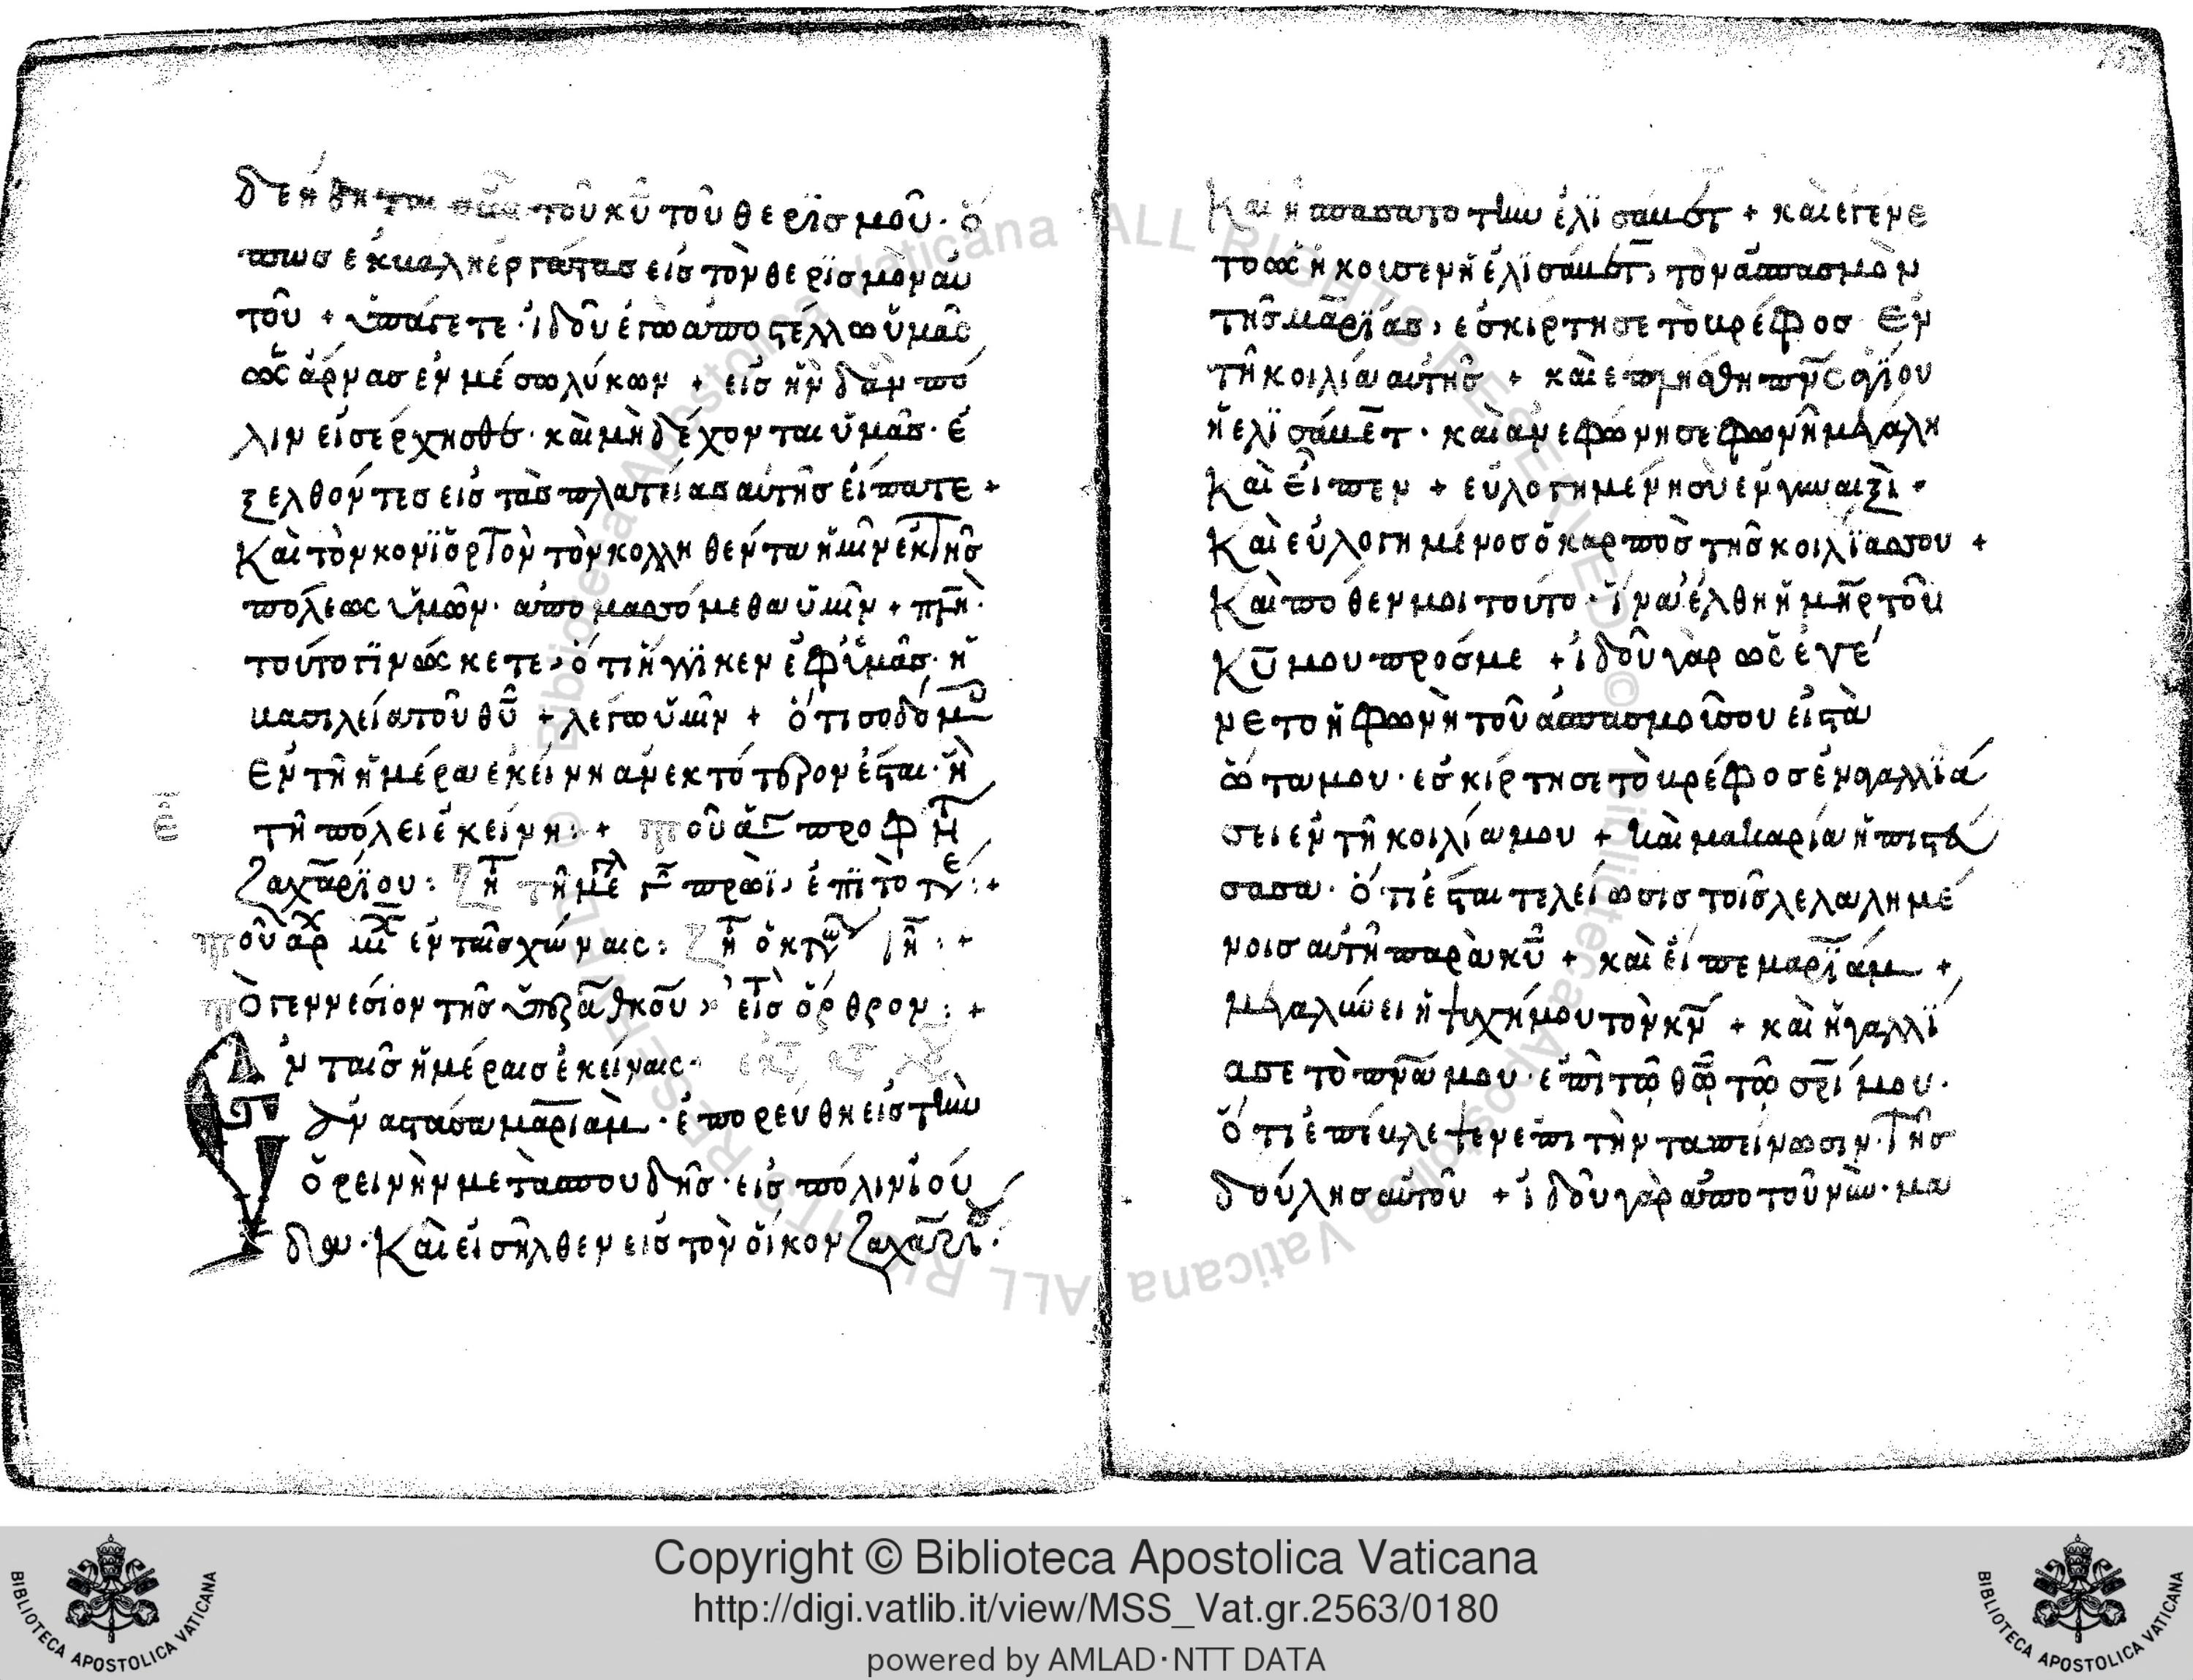 δεήθηται οὖν τοῦ κῦ τοῦ θερϊσμοῦ· ὅ
πωσ ἐκβαλη ἐργάτασ εἰσ τὸν θερϊσμὸν αὐ
τοῦ + ὑπάγετε· ἰδοῦ ἐγὼ ἀποστέλλω ὑμᾶς
ὡς ἄρνασ ἐν μέσω λύκων + εἰσ ἣν δὰν πό
λιν εἰσέρχησθε· καὶ μὴ δέχονται ὑμᾶσ· ἐ
ξελθόντεσ εἰσ τὰσ πλατείασ αὐτῆσ εἴπατε +
Καὶ τὸν κονϊὁρτὸν τὸν κολληθέντα ἡμῖν ἐκ τῆσ
πόλεως ὑμῶν· ἀπομασσόμεθα ὑμῖν + πλὴν
τούτο γϊνώσκετε, ὅτι ἤγγϊκεν ἐφ ὑμᾶσ· ἡ
βασιλεία τοῦ θῦ + λέγω ὑμῖν + ὅτι σοδόμ
Ἐν τῆ ἡμέρα ἐκείνη ἀνεκτότερον ἔσται· ἢ
τῆ πόλει ἐκείνη :· + τοῦ ἁγ προφή
Ζαχαρϊου :
ἐν ταῖσ χώναις :
ἐισ ὄρθρον : +
ν ταῖσ ἡμέραισ ἐκείναις·
ἀναστάσα μαρϊὰμ· ἐπορεύθη εἰσ τὴν
ὀρεινὴν μετὰ σπουδῆσ· εἰσ πόλιν ἰού
δα· Καὶ εἰσῆλθεν εἰσ τὸν οἶκον Ζαχαρϊ
Καὶ ἠσπάσατο τὴν ἐλϊσάβετ + καὶ ἐγένε
το ὡς ἤκουσεν ἡ ἐλϊσάβετ, τὸν ἀσπασμὸν
τῆσ μαρϊασ, ἐσκίρτησε τὸ βρέφοσ Ἐν
τῆ κοιλία αὐτῆσ + καὶ ἐπλήσθη πνς ἁγϊου
ἡ ἐλϊσάβετ· καὶ ἀνεφώνησε φωνῆ μεγάλη
Καὶ εἶπεν + εὐλογημένη σὺ ἐν γυναιξὶ·
Καὶ εὐλογημένοσ ὁ καρποσ τῆσ κοιλϊασ σου +
Καὶ πόθεν μοι τούτο· ἵνα ἔλθη ἡ μηρ τοῦ
κῦ μου προσ με + ἰδοῦ γὰρ ὡς ἐγέ
νετο ἡ φωνὴ τοῦ ἀσπασμοῦ σου εἰσ τὰ
ὦτα μου· ἐσκίρτησε τὸ βρέφοσ ἐν αγαλλϊά
σει ἐν τῆ κοιλία μου + καὶ μακαρία ἡ πιστεύ
σασα· ὅτι ἔσται τελείωσισ τοῖσ λελαλημέ
νοισ αὐτῆ παρὰ κῦ + καὶ εἶπε μαρϊάμ +
μεγαλύνει ἡ ψυχή μου τὸν κν + καὶ ἠγαλλϊ
ασε τὸ πνα μου· ἐπὶ τῶ θῶ τῶ σρϊ μου·
ὅτι ἐπέβλεψεν ἐπι τὴν ταπείνωσιν· Τῆσ
δούλησ αὐτοῦ + ἰδοῦ γὰρ ἀπο τοῦ νῦν· μα
Copyright © Biblioteca Apostolica Vaticana
http://digi.vatlib.it/view/MSS_Vat.gr.2563/0180
powered by AMLAD·NTT DATA
BIBLIOTECA APOSTOLICA VATICANA
BIBLIOTECA APOSTOLICA VATICANA